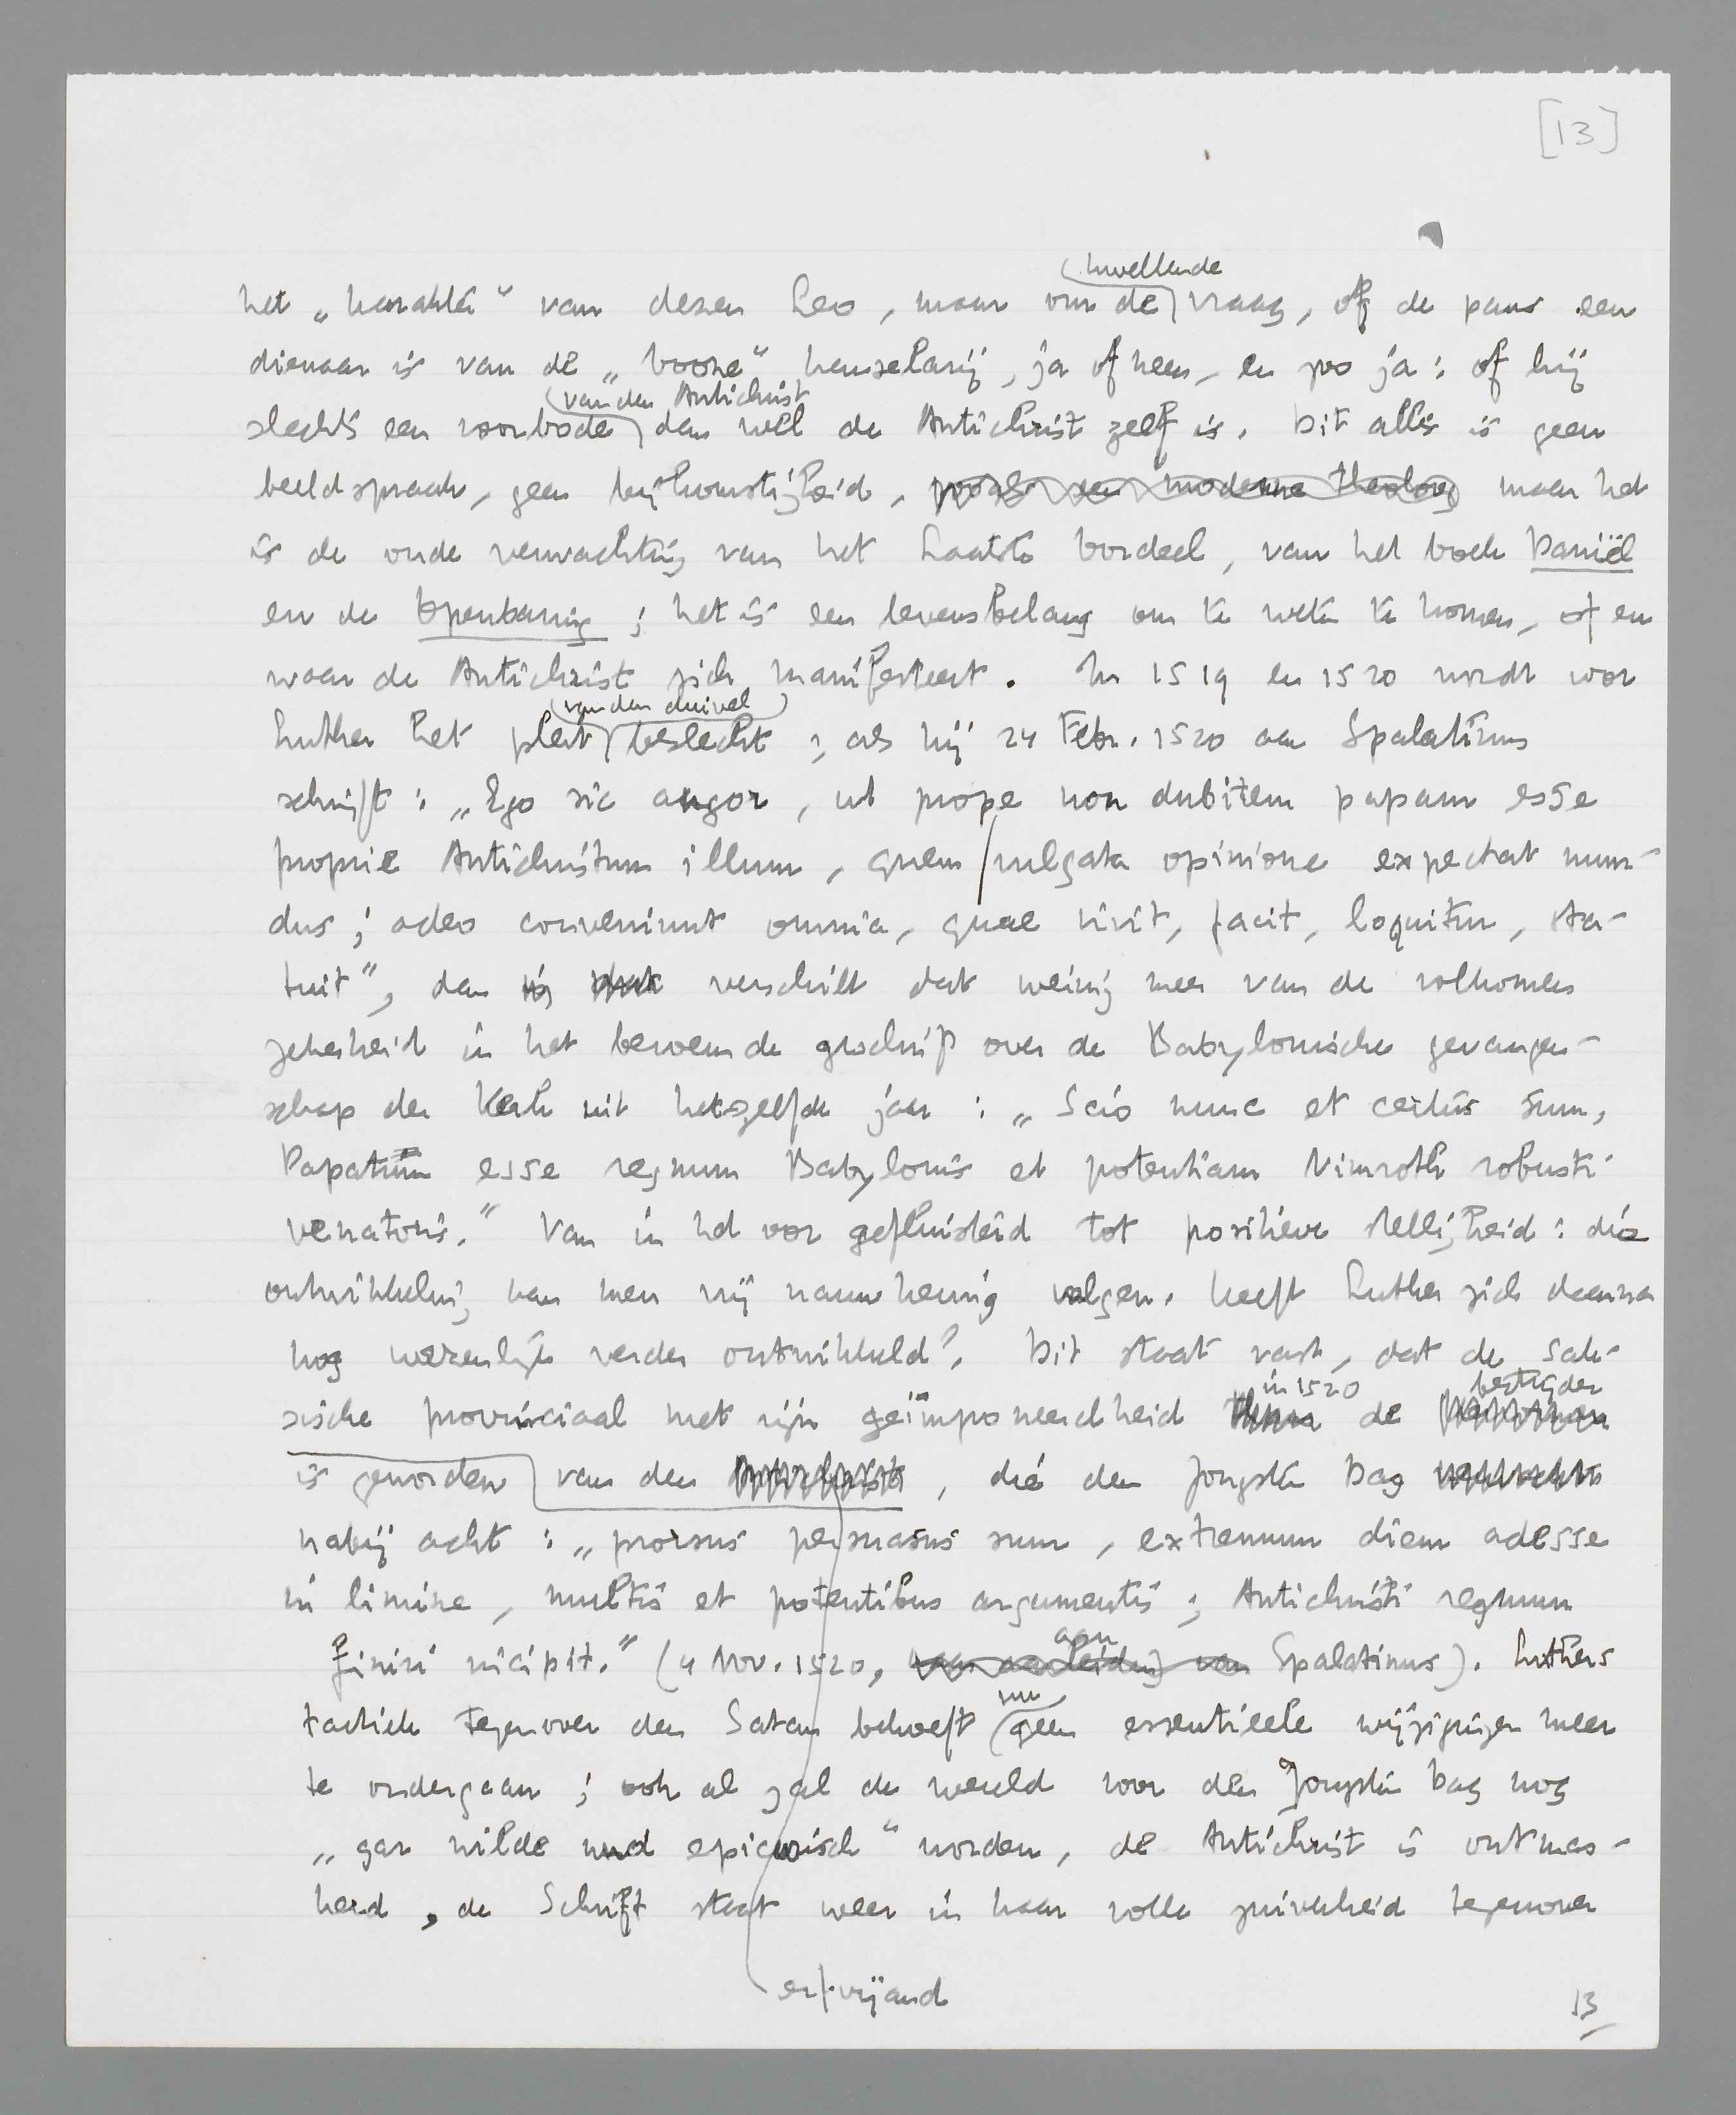 [13]
kwellende
het „karakter" van dezen Leo, maar om de vraag, of de paus een
dienaar is van de „booze" kanselarij, ja of neen, en zoo ja: of hij
van den Antichrist
slechts een voorbode dan wel de Antichrist zelf is. Dit alles is geen
beeldspraak, geen bijkomstigheid, zooals een moderne theoloog maar het
is de oude verwachting van het Laatste Oordeel, van het boek Daniël
en de Openbaring; het is een levensbelang om te weten te komen, of en
waar de Antichrist zich manifesteert. In 1519 en 1520 wordt voor
van den duivel
Luther het pleit beslecht; als hij 24 Febr. 1520 aan Spalatinus
schrijft: „Ego sic angor, ut prope non dubitem papam esse
proprie Antichristum illum, quem vulgata opinione expectat mun-
dus; adeo conveniunt omnia, quae vivit, facit, loquitur, sta-
tuit", dan verschilt dat weinig meer van de volkomen
zekerheid in het beroemde geschrift over de Babylonische gevangen-
schap der Kerk uit hetzelfde jaar: „Scio nunc et certus sum,
Papatum esse regnum Babylonis et potentiam Nimroth robusti
venatoris." Van in het oor gefluisterd tot positieve stelligheid: die
ontwikkeling kan men vrij nauwkeurig volgen. Heeft Luther zich daarna
nog wezenlijk verder ontwikkeld? Dit staat vast, dat de Sak-
in 1520 bestrijder
sische provinciaal met zijn geïmponeerdheid de
is geworden van den , die den Jongsten Dag
nabij acht: „prorsus persuasus sum, extremum diem adesse
in limine, multis et potentibus argumentis; Antichristi regnum
aan
finiri incipit." (4 Nov. 1520, van aanleiding van Spalatinus). Luthers
nu
tactiek tegenover den Satan behoeft geen essentieele wijzigingen meer
te ondergaan; ook al zal de wereld voor den Jongsten Dag nog
„gar wilde und epicurisch" worden, de Antichrist is ontmas-
kerd, de Schrift staat weer in haar volle zuiverheid tegenover
erfvijand
13